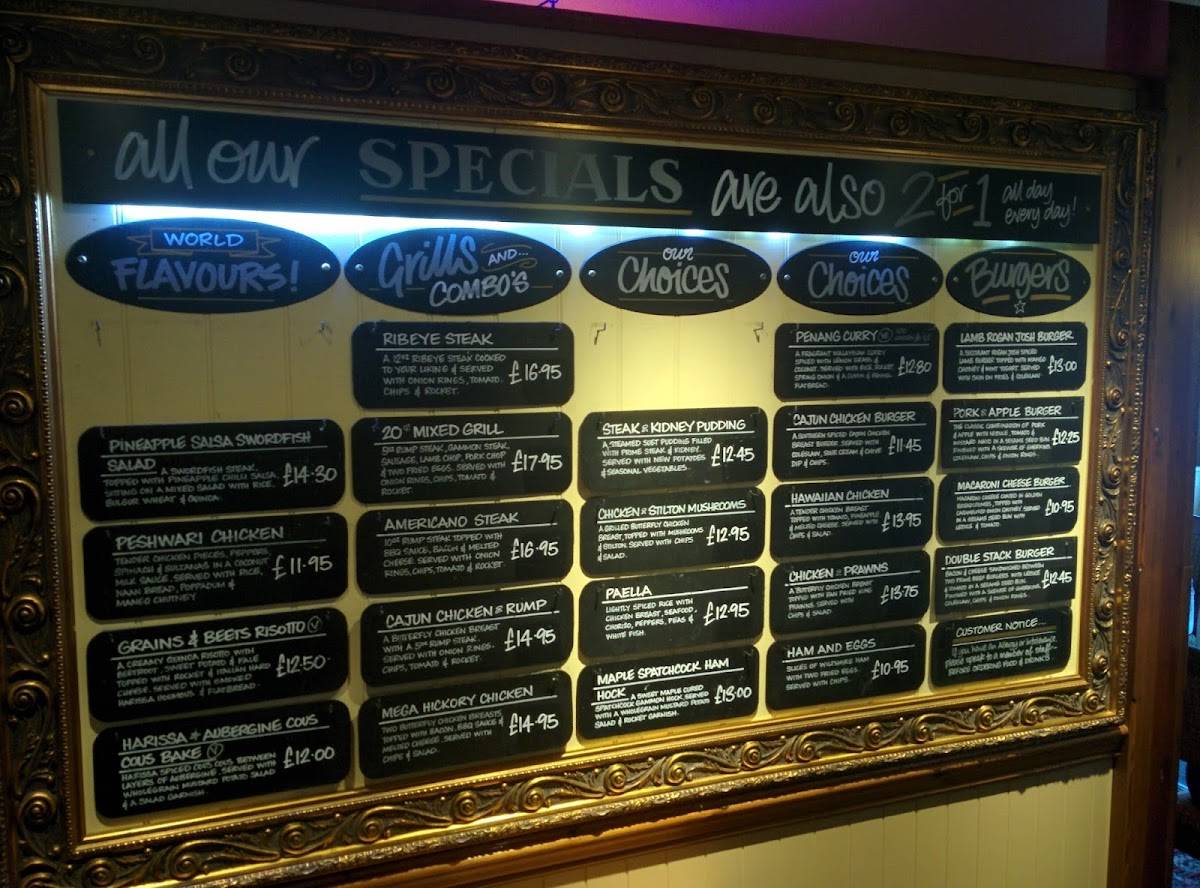 all our SPECIALS are also 2 for 1 all day
every day!
WORLD
FLAVOURS!
PINEAPPLE SALSA SWORDFISH
SALAD A SWORDFISH STEAK,
TOPPED WITH PINEAPPLE CHILLI SALSA,
SITTING ON A MIXED SALAD WITH RICE,
BULGUR WHEAT & QUINOA.
£14.30
PESHWARI CHICKEN
TENDER CHICKEN PIECES, PEPPERS,
SPINACH & SULTANAS IN A COCONUT
MILK SAUCE, SERVED WITH RICE,
NAAN BREAD, POPPADUM &
MANGO CHUTNEY
£11.95
GRAINS & BEETS RISOTTO V
A CREAMY QUINOA RISOTTO WITH
BEETROOT, SWEET POTATO & KALE
TOPPED WITH ROCKET & ITALIAN HARD
CHEESE. SERVED WITH SMOKED
HARISSA HOUMOUS & FLATBREAD.
£12.50
HARISSA & AUBERGINE COUS
COUS BAKE V
HARISSA SPICED COUS COUS, BETWEEN
LAYERS OF AUBERGINE, SERVED WITH
WHOLEGRAIN MUSTARD POTATO SALAD
& A SALAD GARNISH.
£12.00
Grills AND...
COMBO'S
RIBEYE STEAK
A 12oz RIBEYE STEAK COOKED
TO YOUR LIKING & SERVED
WITH ONION RINGS, TOMATO,
CHIPS & ROCKET.
£16.95
20oz MIXED GRILL
5oz RUMP STEAK, GAMMON STEAK,
SAUSAGE, LAMB CHOP, PORK CHOP
& TWO FRIED EGGS. SERVED WITH
ONION RINGS, CHIPS, TOMATO &
ROCKET.
£17.95
AMERICANO STEAK
10oz RUMP STEAK TOPPED WITH
BBQ SAUCE, BACON & MELTED
CHEESE. SERVED WITH ONION
RINGS, CHIPS, TOMATO & ROCKET.
£16.95
CAJUN CHICKEN & RUMP
A BUTTERFLY CHICKEN BREAST
WITH A 5oz RUMP STEAK.
SERVED WITH ONION RINGS,
CHIPS, TOMATO & ROCKET.
£14.95
MEGA HICKORY CHICKEN
TWO BUTTERFLY CHICKEN BREASTS
TOPPED WITH BACON, BBQ SAUCE &
MELTED CHEESE. SERVED WITH
CHIPS & SALAD.
£14.95
our
Choices
STEAK & KIDNEY PUDDING
A STEAMED SUET PUDDING FILLED
WITH PRIME STEAK & KIDNEY.
SERVED WITH NEW POTATOES
& SEASONAL VEGETABLES.
£12.45
CHICKEN & STILTON MUSHROOMS
A GRILLED BUTTERFLY CHICKEN
BREAST, TOPPED WITH MUSHROOMS
& STILTON. SERVED WITH CHIPS
& SALAD.
£12.95
PAELLA
LIGHTLY SPICED RICE WITH
CHICKEN BREAST, SEAFOOD,
CHORIZO, PEPPERS, PEAS &
WHITE FISH.
£12.95
MAPLE SPATCHCOCK HAM
HOCK A SWEET MAPLE CURED
SPATCHCOCK GAMMON HOCK, SERVED
WITH A WHOLEGRAIN MUSTARD POTATO
SALAD & ROCKET GARNISH.
£13.00
our
Choices
PENANG CURRY V
A FRAGRANT MALAYSIAN CURRY
SPICED WITH LEMON GRASS &
COCONUT. SERVED WITH RICE,
SPRING ONION &
FLATBREAD.
£12.80
CAJUN CHICKEN BURGER
A SOUTHERN SPICED CAJUN CHICKEN
BREAST BURGER, SERVED WITH
COLESLAW, SOUR CREAM & CHIVE
DIP & CHIPS.
£11.45
HAWAIIAN CHICKEN
A TENDER CHICKEN BREAST
TOPPED WITH TOMATO, PINEAPPLE
& MELTED CHEESE. SERVED WITH
CHIPS & SALAD.
£13.95
CHICKEN & PRAWNS
A BUTTERFLY CHICKEN BREAST
TOPPED WITH PAN FRIED KING
PRAWNS. SERVED WITH
CHIPS & SALAD.
£13.75
HAM AND EGGS
SLICES OF WILTSHIRE HAM
WITH TWO FRIED EGGS.
SERVED WITH CHIPS.
£10.95
Burgers
LAMB ROGAN JOSH BURGER
A SUCCULENT ROGAN JOSH SPICED
LAMB BURGER TOPPED WITH MANGO
CHUTNEY & MINT YOGURT. SERVED
WITH SKIN ON FRIES & COLESLAW.
£13.00
PORK & APPLE BURGER
THE CLASSIC COMBINATION OF PORK
& APPLE WITH LETTUCE, TOMATO &
MUSTARD MAYO IN A SESAME SEED BUN.
FINISHED WITH A SKEWER OF GHERKINS,
COLESLAW, CHIPS & ONION RINGS.
£12.25
MACARONI CHEESE BURGER
MACARONI CHEESE COATED IN GOLDEN
BREADCRUMBS, TOPPED WITH
CHUTNEY, SERVED
IN A SESAME SEED BUN WITH
LETTUCE & TOMATO.
£10.95
DOUBLE STACK BURGER
BACON & CHEESE SANDWICHED BETWEEN
TWO PRIME BEEF BURGERS WITH LETTUCE
& TOMATO IN A SESAME SEED BUN.
FINISHED WITH A SKEWER OF GHERKINS,
COLESLAW, CHIPS & ONION RINGS.
£12.45
CUSTOMER NOTICE...
If you have An Allergy or Intolerance,
please speak to a member of staff
BEFORE ORDERING FOOD & DRINKS.